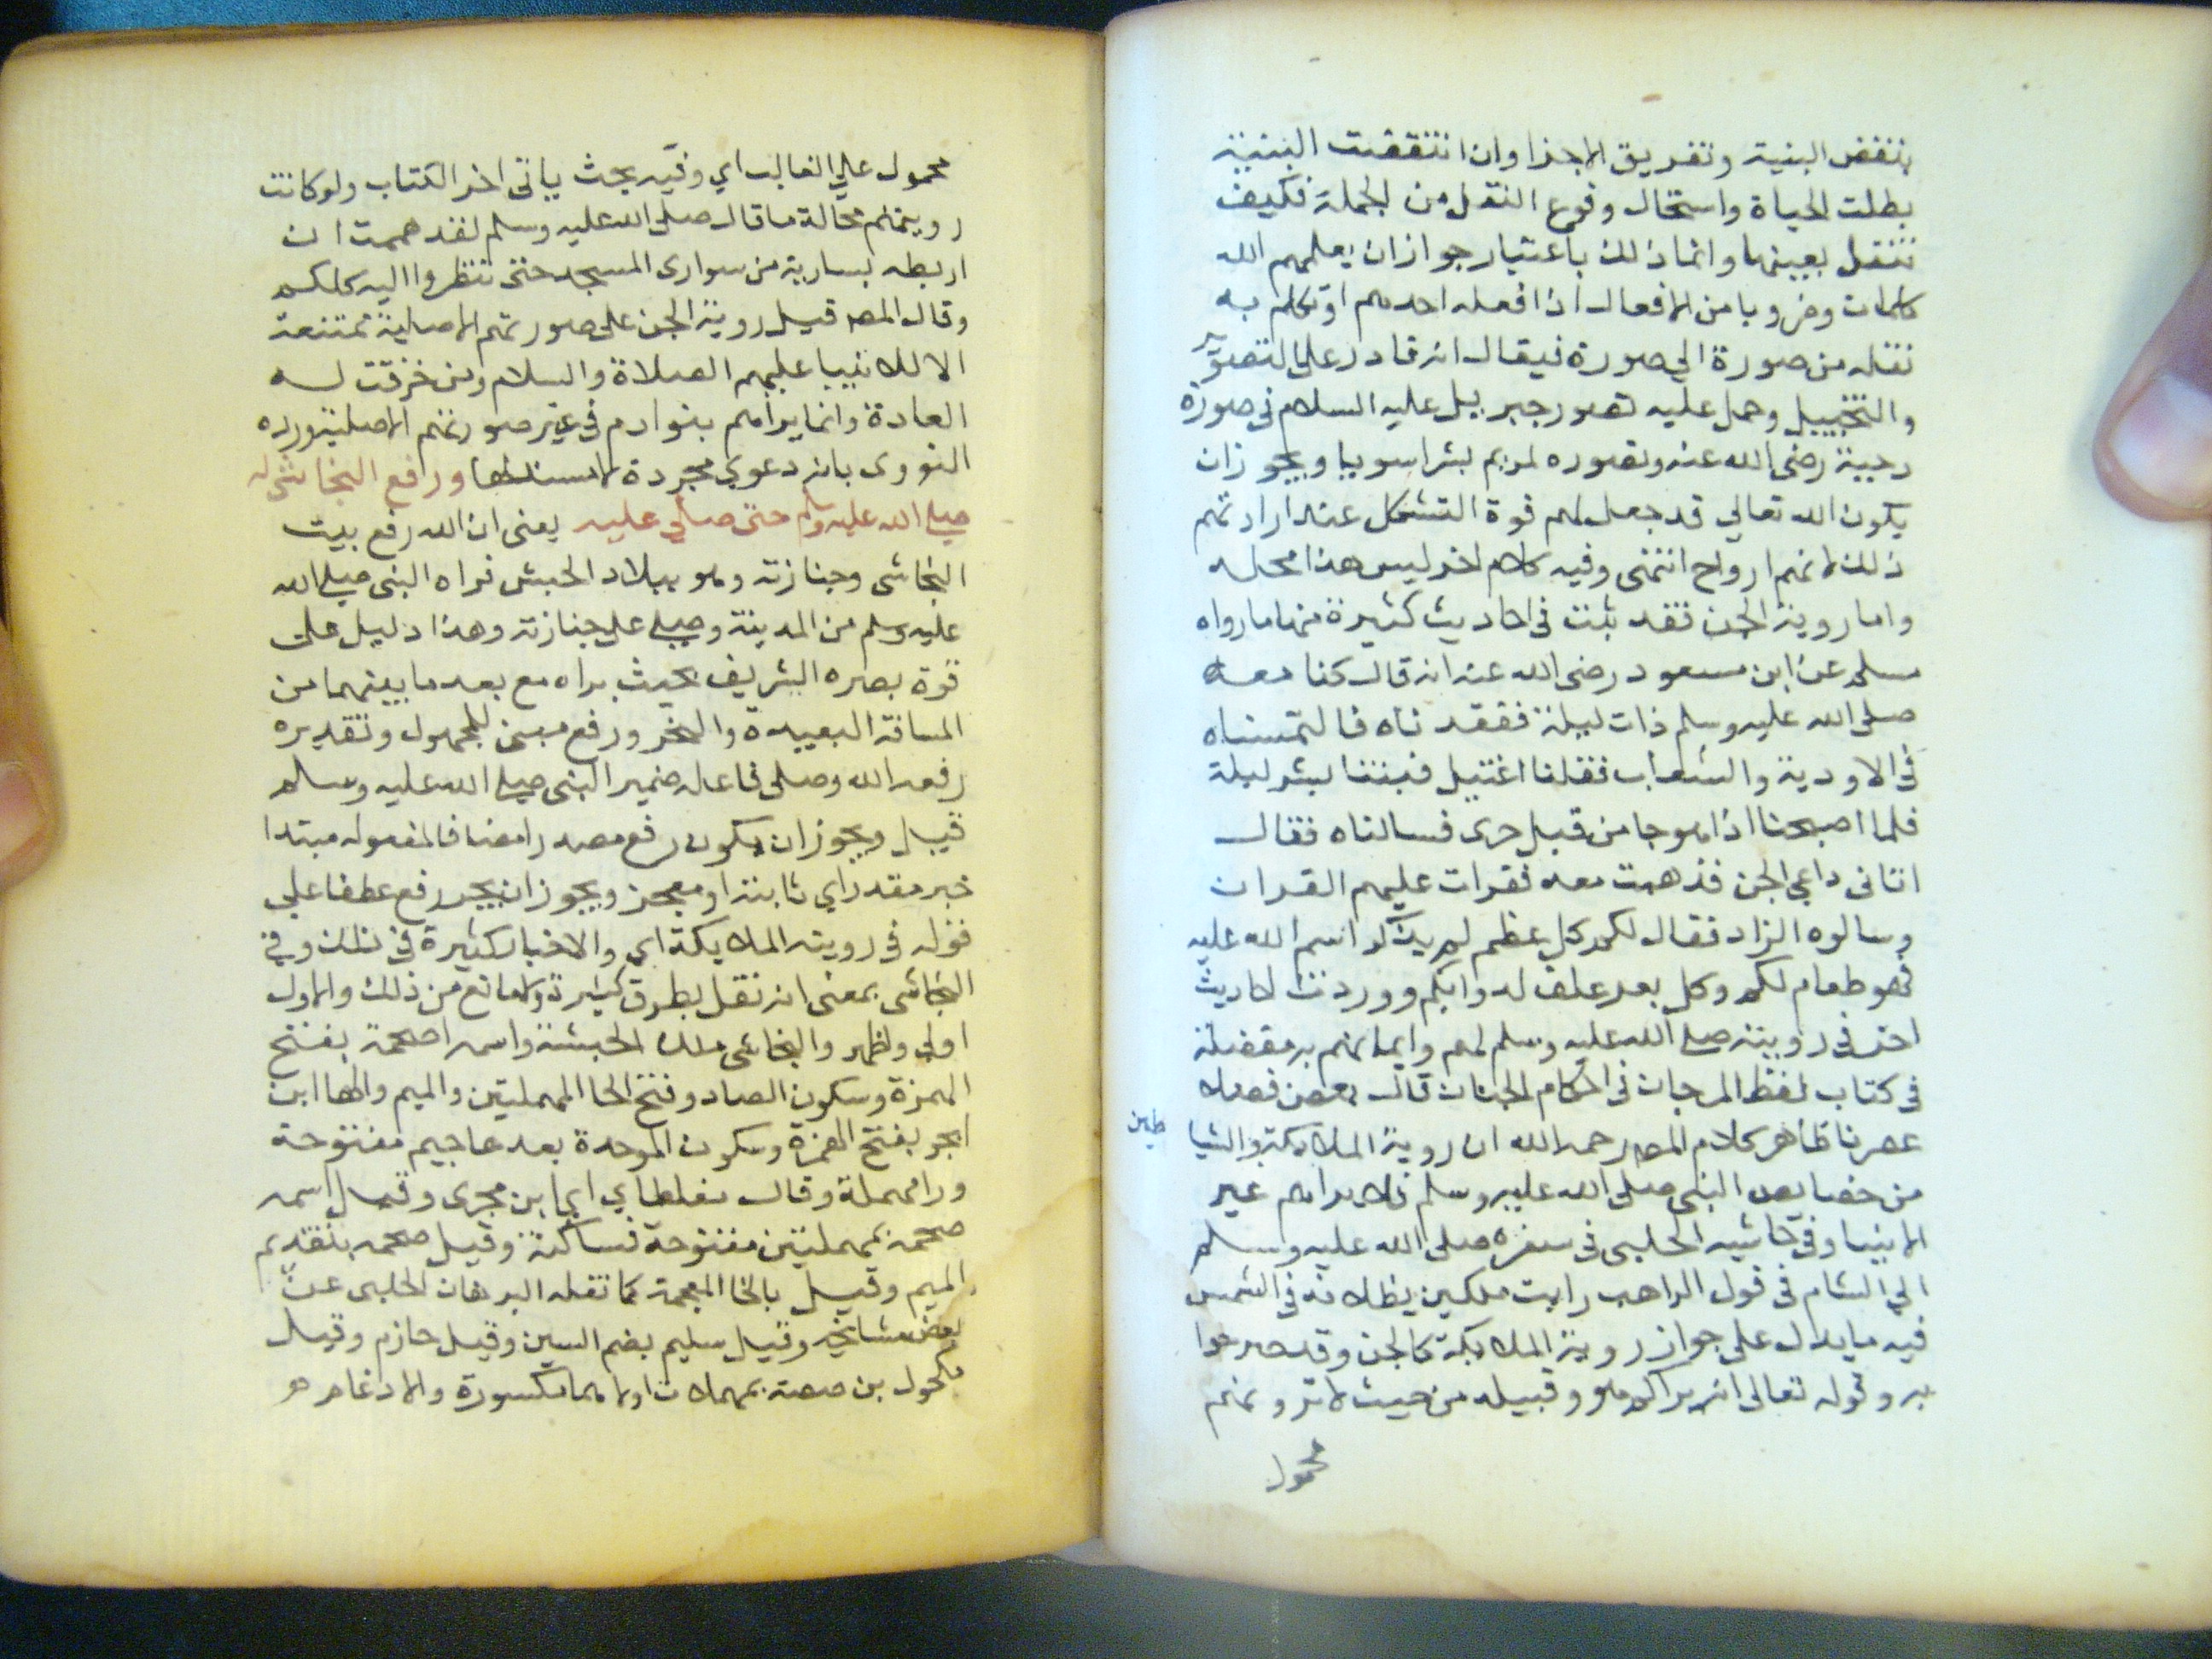 بنقض البنية وتفريق الاجزا وان انتقضت البنية
بطلت الحياة واستحال وقوع النقل من الجملة فكيف
تنتقل بعينها وانما ذلك باعتبار جواز ان يعلمهم الله
كلمات وضروبا من الافعال اذا فعله احدهم او تكلم به
نقله من صورة الي صورة فيقال انه قادر على التصوير
والتخييل وحمل عليه تصور جبريل عليه السلام في صورة
دحية رضى الله عنه وتصوره لمريم بشرا سويا ويجوز ان
يكون الله تعالي قد جعل لهم قوة التشكل عند ارادتهم
ذلك لانهم ارواح انتهى وفيه كلام اخر ليس هذا محله
واما روية الجن فقد ثبت في احاديث كثيرة منها ما رواه
مسلم عن ابن مسعود رضى الله عنه انه قال كنا معه
صلى الله عليه وسلم ذات ليلة ففقدناه فالتمسناه
في الاودية والشعاب فقلنا اغتيل فبتنا بشر ليلة
فلما اصبحنا اذا هو جا من قبل حرى فسالناه فقال
اتانى داعي الجن فذهبت معه فقرات عليهم القران
وسالوه الزاد فقال لكم كل عظم لم يذكر اسم الله عليه
فهو طعام لكم وكل بعر علف لدوابكم ووردت احاديث
اخر في رويته صلى الله عليه وسلم لهم وايمانهم به مفصلة
في كتاب لفظ المرجان في احكام الجان قال بعض فضلا
عصرنا ظاهر كلام المص رحمه الله ان روية الملايكة والشيا
طين
من خصايص النبى صلى الله عليه وسلم فلا يراهم غير
الانبيا وفي حاشية الحلبى في سفره صلى الله عليه وسلم
الي الشام في قول الراهب رايت ملكين يظلانه في الشمس
فيه ما يدل على جواز روية الملايكة كالجن وقد صرحوا
به وقوله تعالى انه يراكم هو وقبيله من حيث لا ترونهم
محمول
محمول علي الغالب اي وفيه بحث ياتى اخر الكتاب ولو كانت
رويتهم محالة ما قال صلى الله عليه وسلم لقد هممت ان
اربطه بسارية من سوارى المسجد حتى تنظروا اليه كلكم
وقال المص قيل روية الجن على صورتهم الاصلية ممتنعة
الا للانبيا عليهم الصلاة والسلام ومن خرقت له
العادة وانما يراهم بنوا ادم في غير صورتهم الاصلية ورده
النووى بانه دعوي مجردة لا مستند لها ورفع النجاشى له
صلى الله عليه وسلم حتى صلي عليه يعنى ان الله رفع بيت
النجاشى وجنازته وهو ببلاد الحبش فراه النبى صلى الله
عليه وسلم من المدينة وصلى على جنازته وهذا دليل على
قوة بصره الشريف بحيث يراه مع بعد ما بينهما من
المسافة البعيدة والبحر ورفع مبنى للمجهول وتقديره
رفعه الله وصلى فاعله ضمير النبى صلى الله عليه وسلم
قيل ويجوز ان يكون رفع مصدرا مضافا لمفعوله مبتدا
خبر مقدر اي ثابت او معجز ويجوز ان يجر رفع عطفا على
قوله في رويته الملايكة اي والاخبار كثيرة في ذلك وفي
النجاشى بمعنى انه نقل بطرق كثيرة ولا مانع من ذلك والاول
اولي واظهر والنجاشى ملك الحبشة واسمه اصحمة بفتح
الهمزة وسكون الصاد وفتح الحا المهملتين والميم والها ابن
ابجر بفتح الهمزة وسكون الموحدة بعدها جيم مفتوحة
ورا مهملة وقال مغلطاي ابن بحرى وقيل اسمه
صحمه بمهملتين مفتوحة فساكنة وقيل صمحه بتقديم
الميم وقيل بالخا المعجمة كما نقله البرهان الحلبى عن
بعض مشايخه وقيل سليم بضم السين وقيل حازم وقيل
مكحول بن صصه بمهملات اولاهما مكسورة والادغام هو